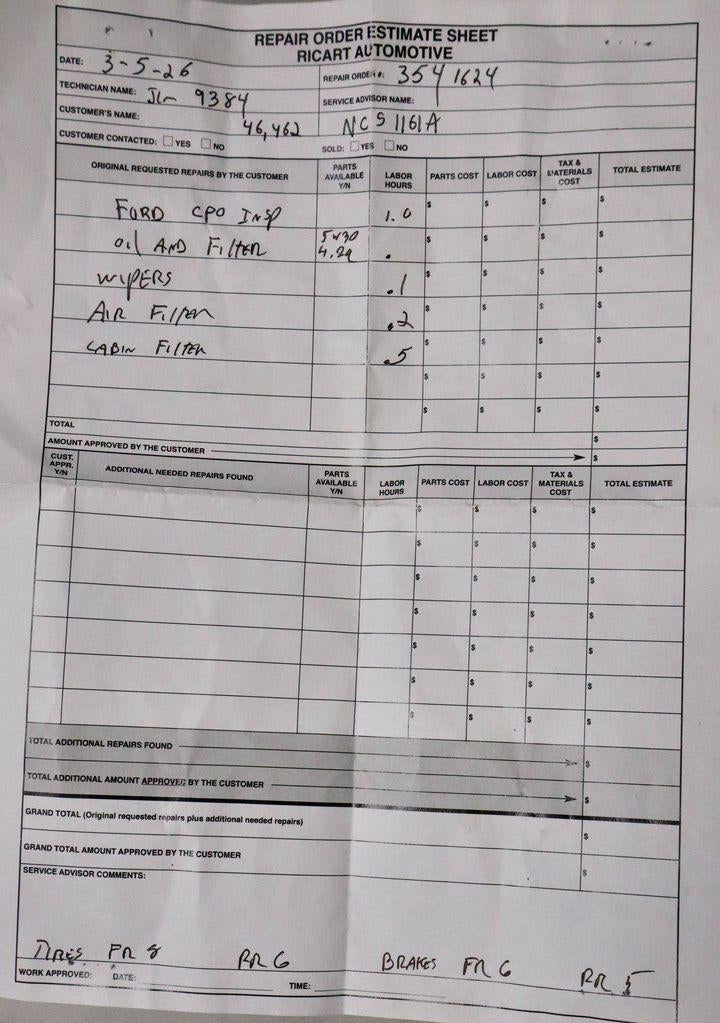 REPAIR ORDER ESTIMATE SHEET
RICART AUTOMOTIVE
DATE: 3-5-26
REPAIR ORDER #: 3541624
TECHNICIAN NAME: 9384
SERVICE ADVISOR NAME:
CUSTOMER'S NAME:
46,462 NCS1161A
CUSTOMER CONTACTED: YES NO
SOLD: YES NO
ORIGINAL REQUESTED REPAIRS BY THE CUSTOMER PARTS AVAILABLE Y/N LABOR HOURS PARTS COST LABOR COST TAX & MATERIALS COST TOTAL ESTIMATE
FORD CPO INSP 1.0 $ $ $ $
OIL AND FILTER 5W30 4.2q . $ $ $ $
WIPERS .1 $ $ $ $
AIR FILTER .2 $ $ $ $
CABIN FILTER .5 $ $ $ $
$ $ $ $
$ $ $ $
TOTAL $
AMOUNT APPROVED BY THE CUSTOMER $
CUST. APPR. Y/N ADDITIONAL NEEDED REPAIRS FOUND PARTS AVAILABLE Y/N LABOR HOURS PARTS COST LABOR COST TAX & MATERIALS COST TOTAL ESTIMATE
$ $ $ $
$ $ $ $
$ $ $ $
$ $ $ $
$ $ $ $
$ $ $ $
$ $ $ $
TOTAL ADDITIONAL REPAIRS FOUND $
TOTAL ADDITIONAL AMOUNT APPROVED BY THE CUSTOMER $
GRAND TOTAL (Original requested repairs plus additional needed repairs) $
GRAND TOTAL AMOUNT APPROVED BY THE CUSTOMER $
SERVICE ADVISOR COMMENTS:
TIRES FR 8 RR 6 BRAKES FR 6 RR 5
WORK APPROVED: DATE: TIME: